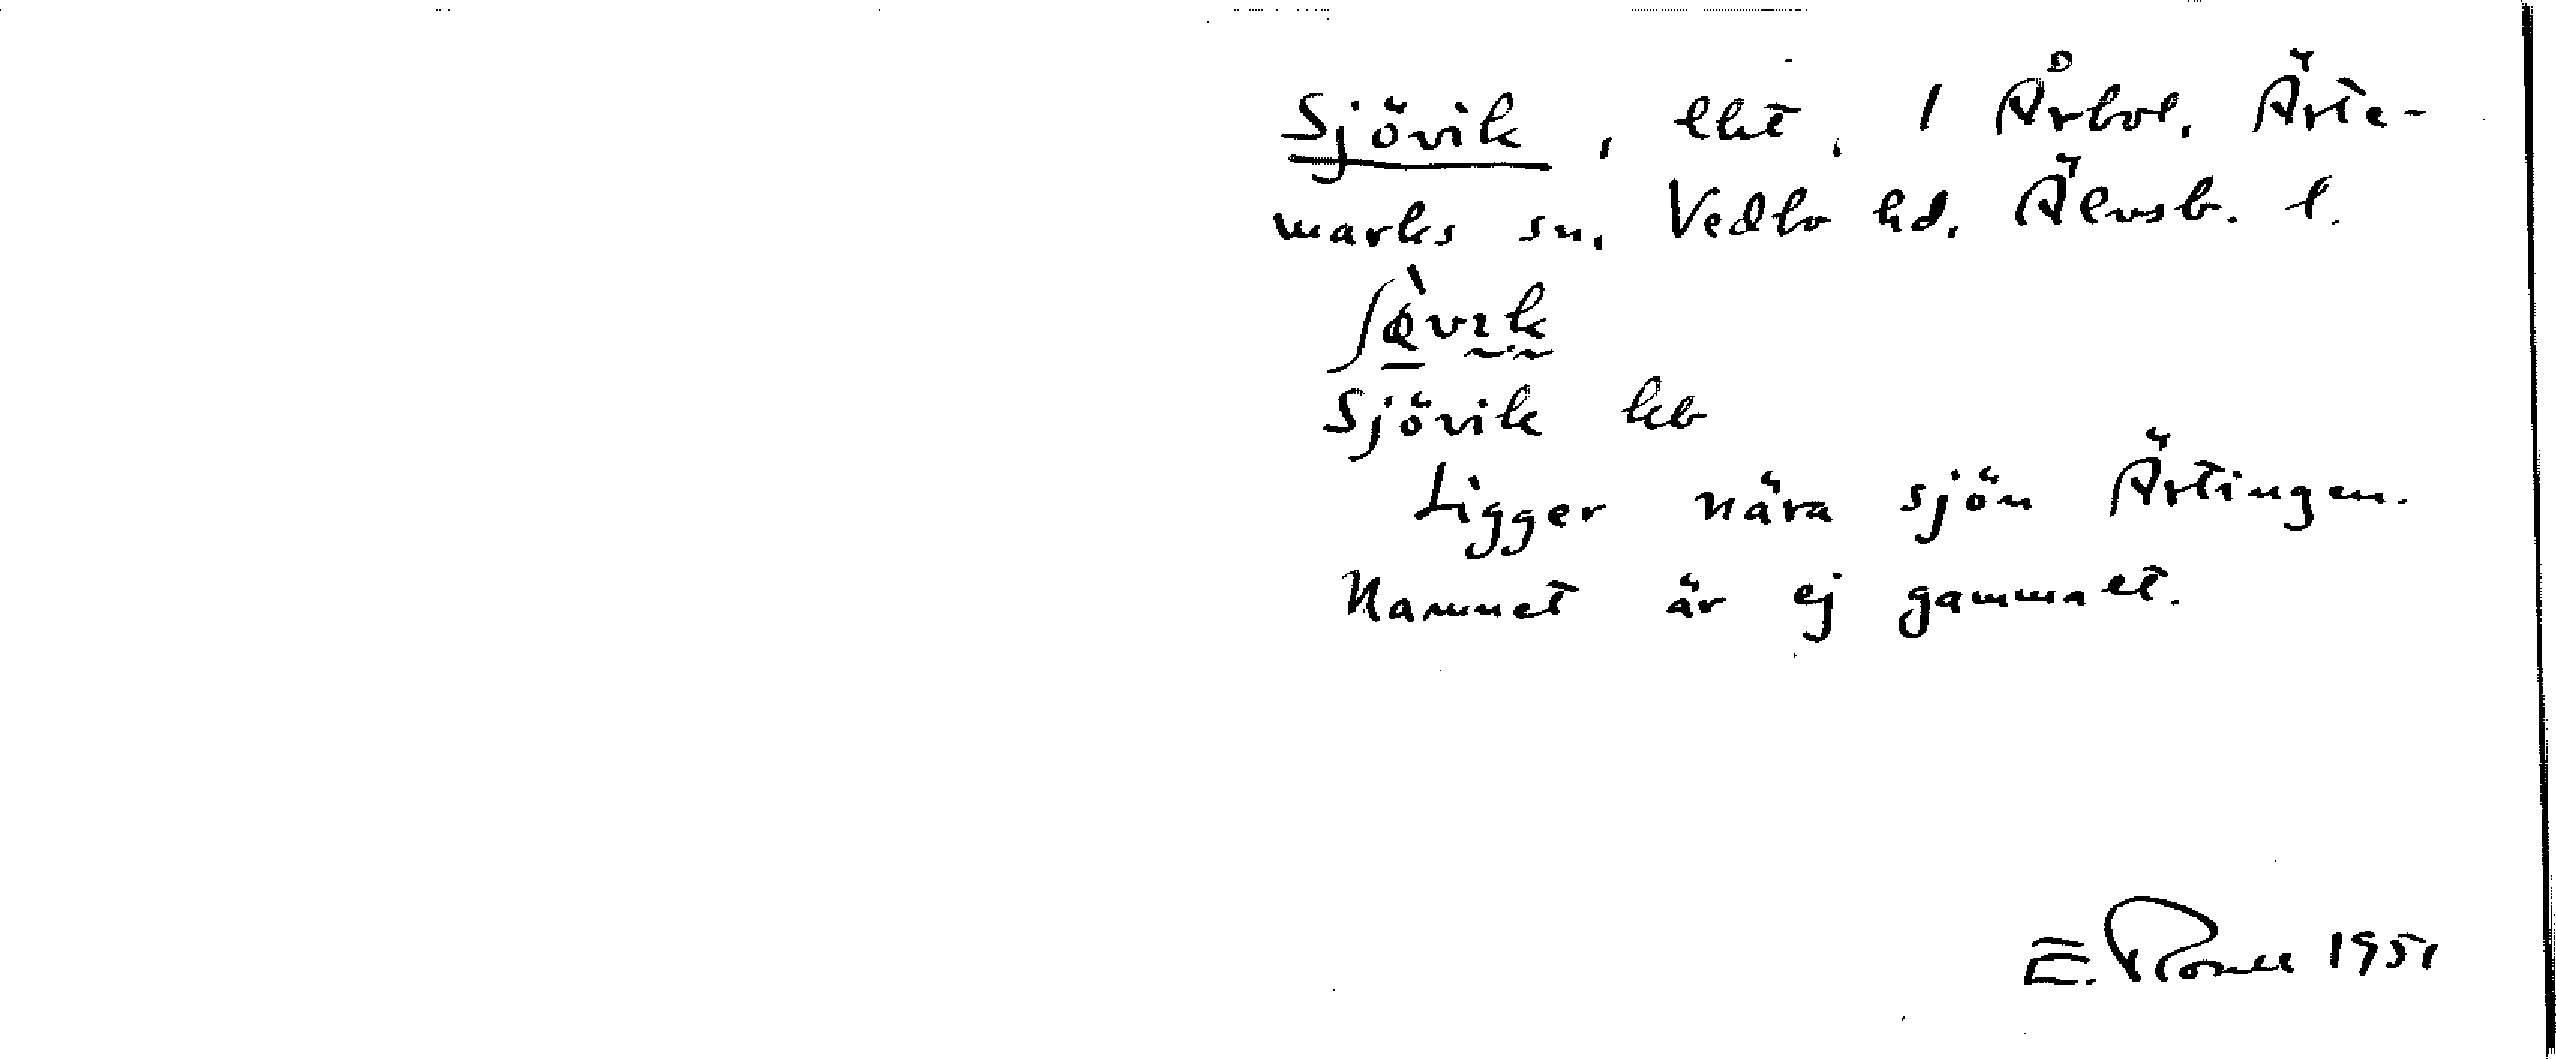 Sjövik, lht, 1 Årbol, Ärte-
marks sn, Vedbo hd, Älvsb. l.
Sjövik kb
Ligger nära sjön Ärtingen.
Namnet är ej gammalt.
E. 1951